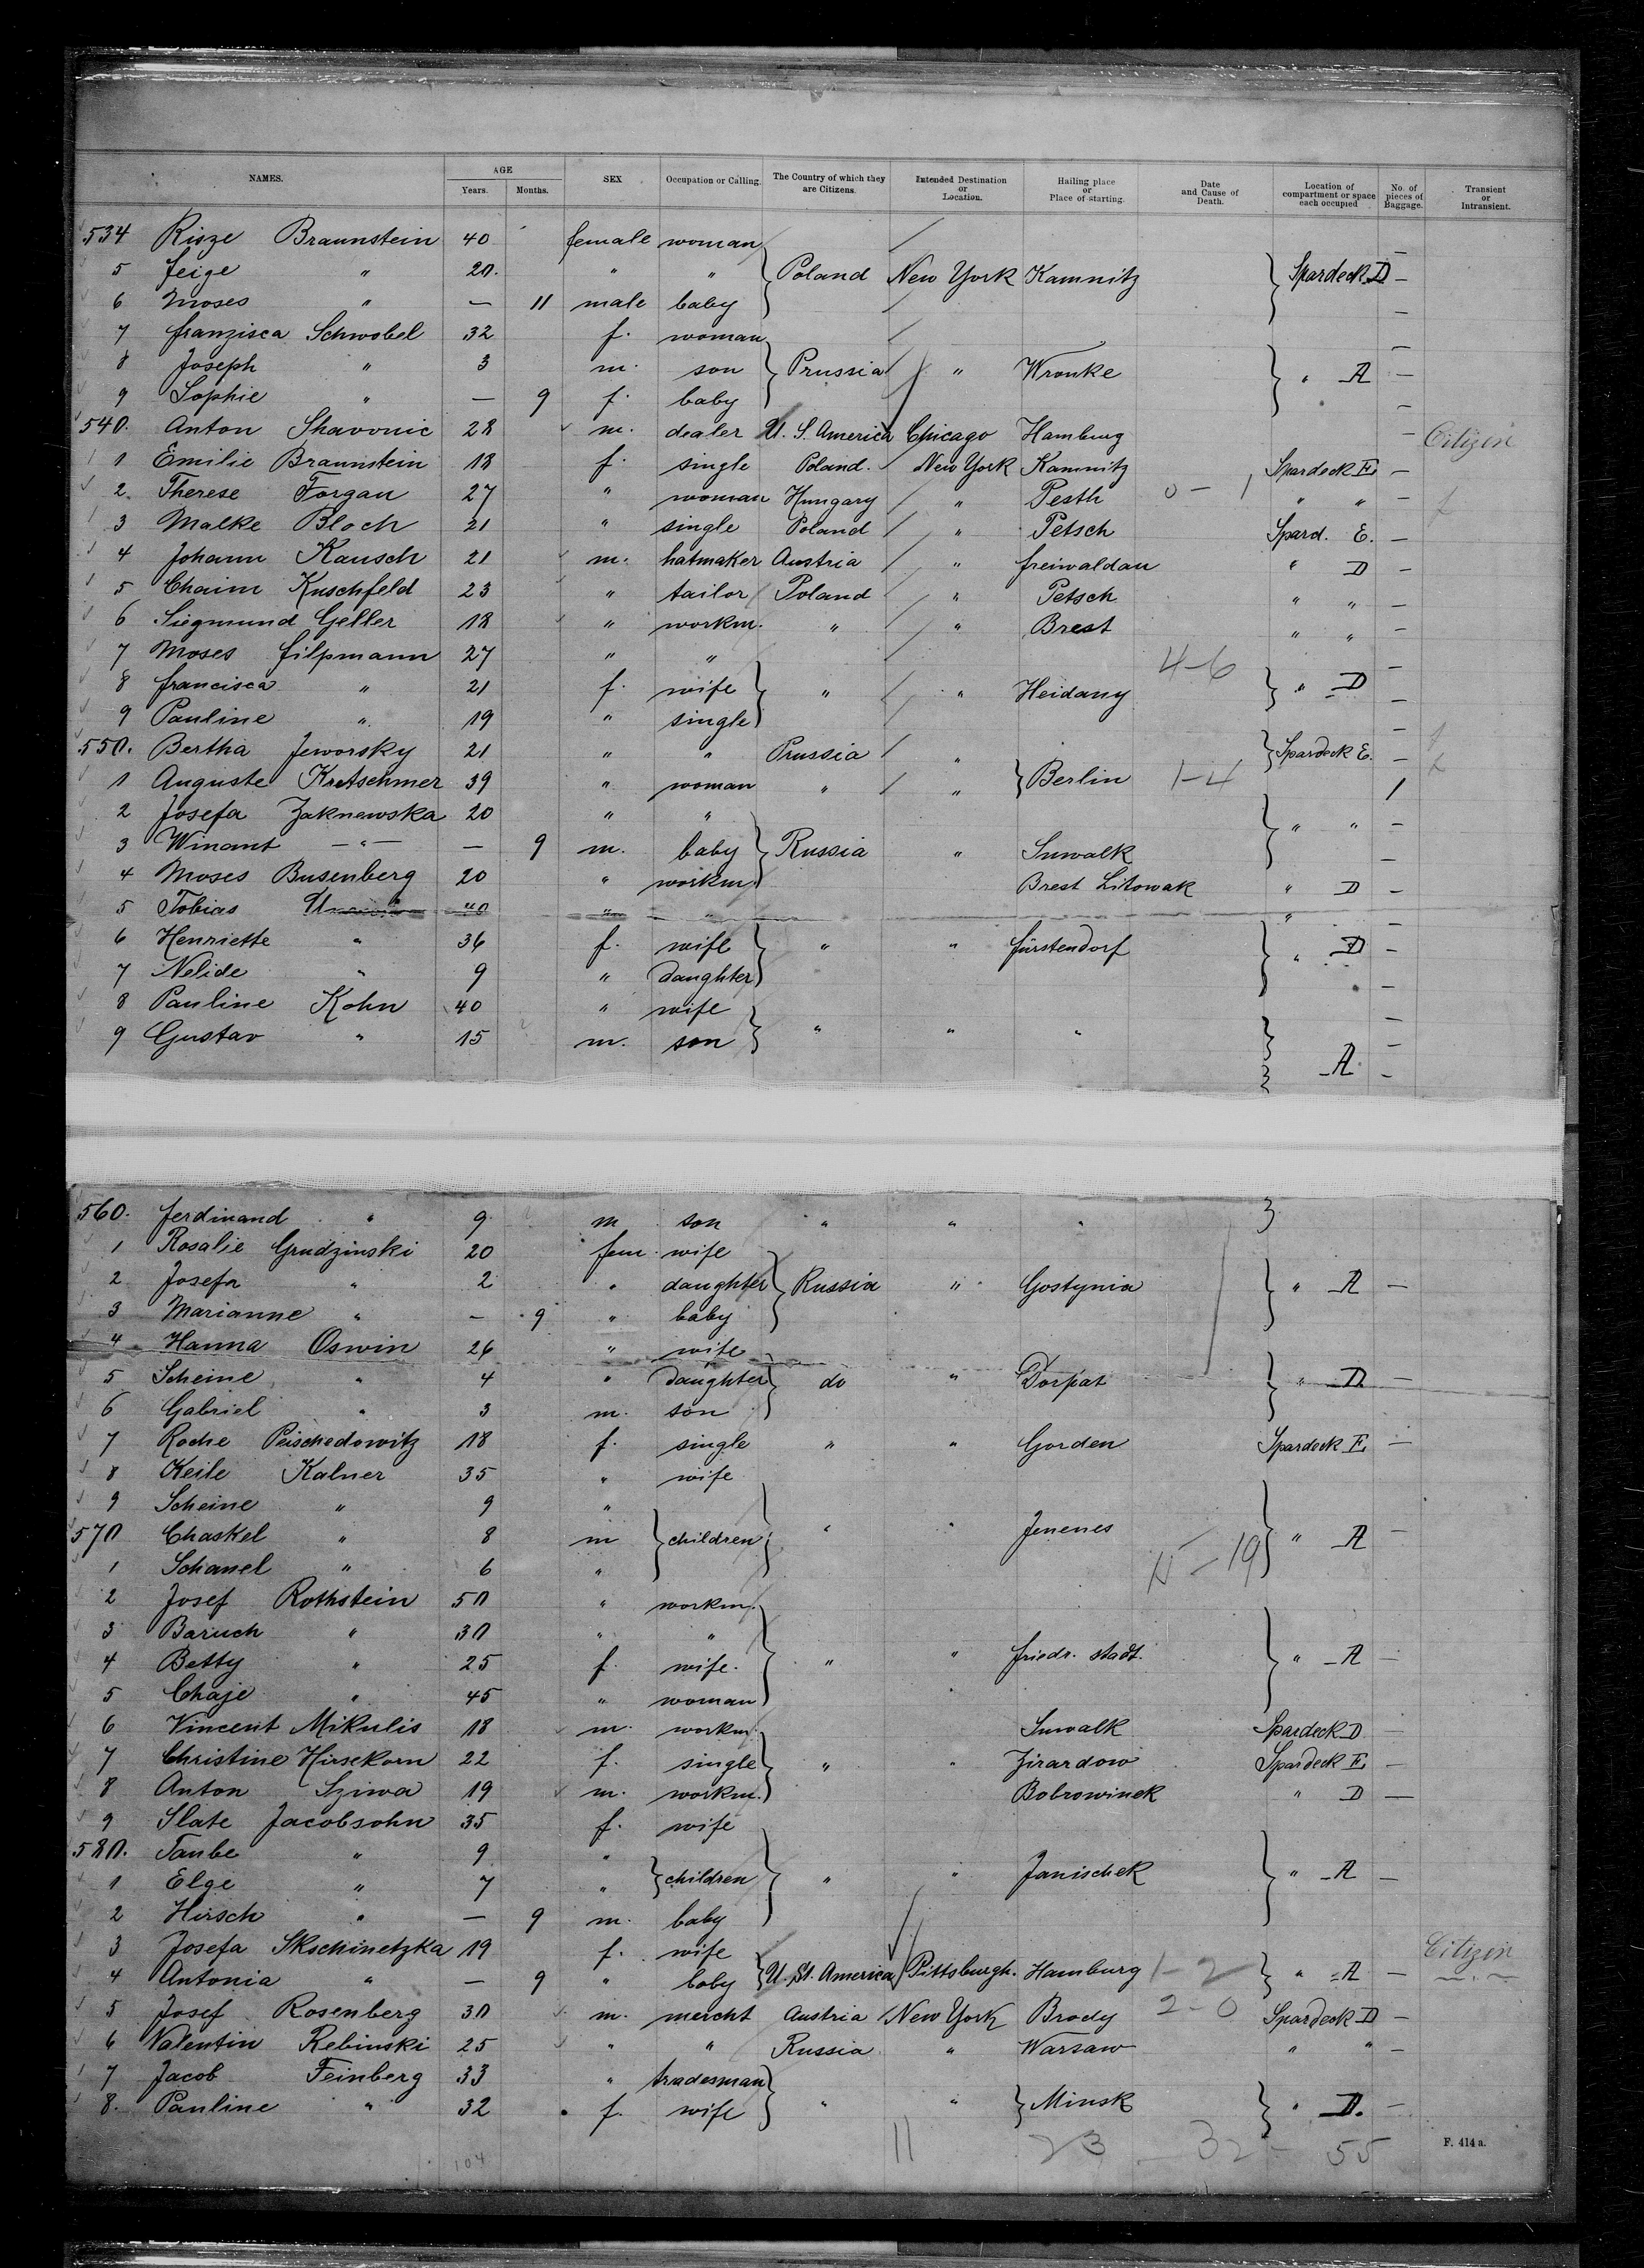 NAMES. AGE SEX Occupation or Calling. The Country of which they are Citizens. Intended Destination or Location. Hailing place or Place of starting. Date and Cause of Death. Location of compartment or space each occupied No. of pieces of Baggage. Transient or Intransient.
Years. Months.
534 Risze Braunstein 40 female woman
5 Feige " 20. " " Poland New York Kamnitz Spardeck D —
6 Moses " — 11 male baby —
7 Franzisca Schwobel 32 f. woman —
8 Joseph " 3 m. son Prussia " Wronke " A —
9 Sophie " — 9 f. baby —
540. Anton Shavonic 28 m. dealer U. S. America Chicago Hamburg — Citizen
1 Emilie Braunstein 18 f. single Poland. New York Kamnitz Spardeck E —
2. Therese Forgan 27 " woman Hungary " Pesth 0 — 1 " " —
3 Malke Bloch 21 " single Poland " Petsch Spard. E. —
4 Johann Kausch 21 m. hatmaker Austria " Freiwaldau " D —
5 Chaim Kuschfeld 23 " tailor Poland " Petsch " " —
6 Siegmund Geller 18 " workm. " " Brest " " —
7 Moses Filpmann 27 " " 4-6 —
8 Francisca " 21 f. wife " " Heidany " D —
9 Pauline " 19 " single —
550. Bertha Jeworsky 21 " " Prussia " Spardeck E. —
1 Auguste Kretschmer 39 " woman " " Berlin 1-4 /
2 Josefa Zaknewska 20 " " " " —
3 Winant — " — — 9 m. baby Russia " Suwalk —
4 Moses Busenberg 20 " workm. Brest Litowak " D —
5 Tobias 40 " " " —
6 Henriette " 36 f. wife " " Fürstendorf " D —
7 Nelide " 9 " daughter —
8 Pauline Kohn 40 " wife —
9 Gustav " 15 m. son " " " —
A —
560. Ferdinand " 9 m son " " "
1 Rosalie Grudzinski 20 fem. wife
2 Josefa " 2 " daughter Russia " Gostynia " A —
3 Marianne " — 9 " baby
4 Hanna Oswin 26 " wife
5 Scheine " 4 " daughter do " Dorpat " D. —
6 Gabriel " 3 m. son
7 Roche Peischedowitz 18 f. single " " Gorden Spardeck E. —
8 Keile Kalner 35 " wife
9 Scheine " 9 "
570 Chaskel " 8 m children " " Jenenes " A —
1 Schanel " 6 " 15 — 19
2 Josef Rothstein 50 " workm.
3 Baruch " 30 " "
4 Betty " 25 f. wife. " " Friedr. stadt. " A —
5 Chaje " 45 " woman
6 Vincent Mikulis 18 m. workm. Suwalk Spardeck D —
7 Christine Hirsekorn 22 f. single " " Zirardow Spardeck E —
8 Anton Sziwa 19 m. workm. Bobrowinek " D —
9 Slate Jacobsohn 35 f. wife
580. Taube " 9 "
1 Elge " 7 " children " " Janischek " A —
2 Hirsch " — 9 m. baby
3 Josefa Skschinetzka 19 f. wife Citizen
4 Antonia " — 9 " baby U. St. America Pittsburgh. Hamburg 1-2 " A —
5 Josef Rosenberg 30 m. mercht Austria New York Brody 2-0 Spardeck D —
6 Valentin Rebinski 25 " " Russia " Warsaw " " —
7 Jacob Feinberg 33 " tradesman
8. Pauline " 32 f. wife " " Minsk " D. —
104 11 23 — 32 - 55 F. 414 a.